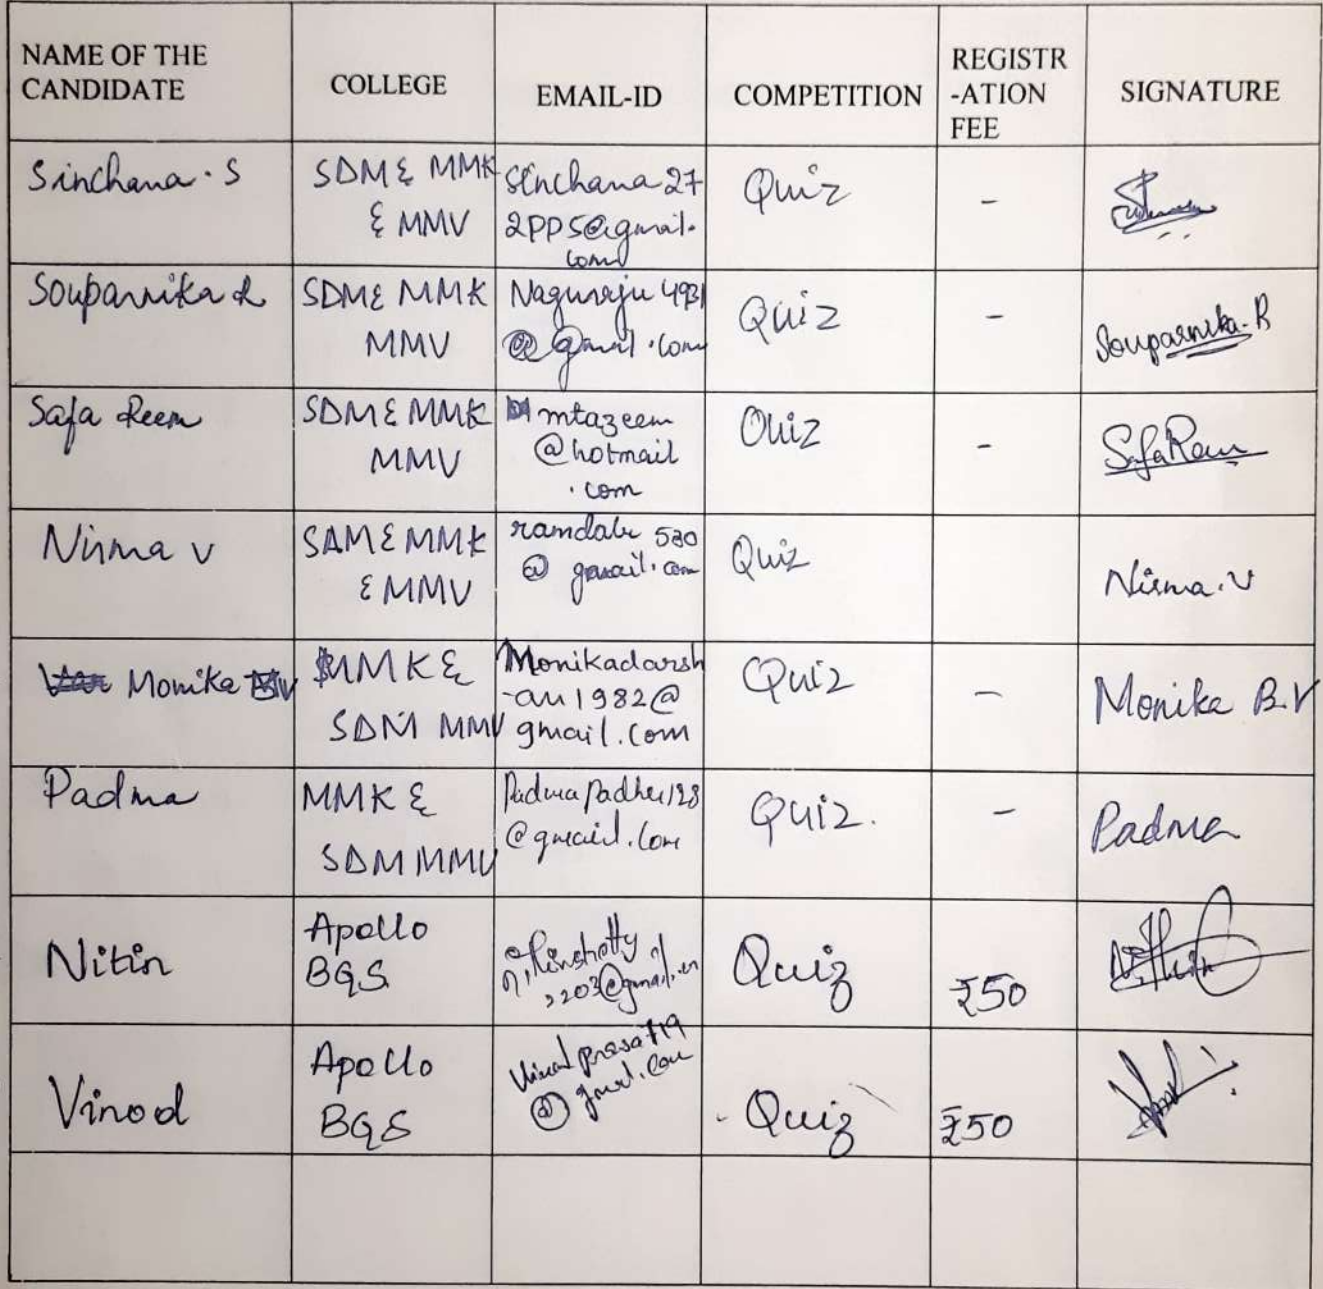 NAME OF THE
CANDIDATE
COLLEGE
EMAIL-ID
COMPETITION
REGISTR
-ATION
FEE
SIGNATURE
Sinchana. S
SDM & MMK
& MMV
sinchana 27
2PPS@gmail.
com
Quiz
-
Souparnika R
SDM & MMK
MMV
4931
@gmail.com
Quiz
-
Souparnika. R
Safa Reem
SDM & MMK
MMV
mtazeem
@hotmail
.com
Quiz
-
Safa Reem
Nirma V
SAM & MMK
& MMV
530
@ gmail.com
Quiz
Nirma. V
Monika BV
MMK &
SDM MMV
Monikadarsh
-an1982@
gmail.com
Quiz
-
Monika B.V
Padma
MMK &
SDM MMV
@gmail.com
Quiz.
-
Padma
Nitin
Apollo
BGS
Quiz
₹50
Vinod
Apollo
BGS
Quiz
₹50